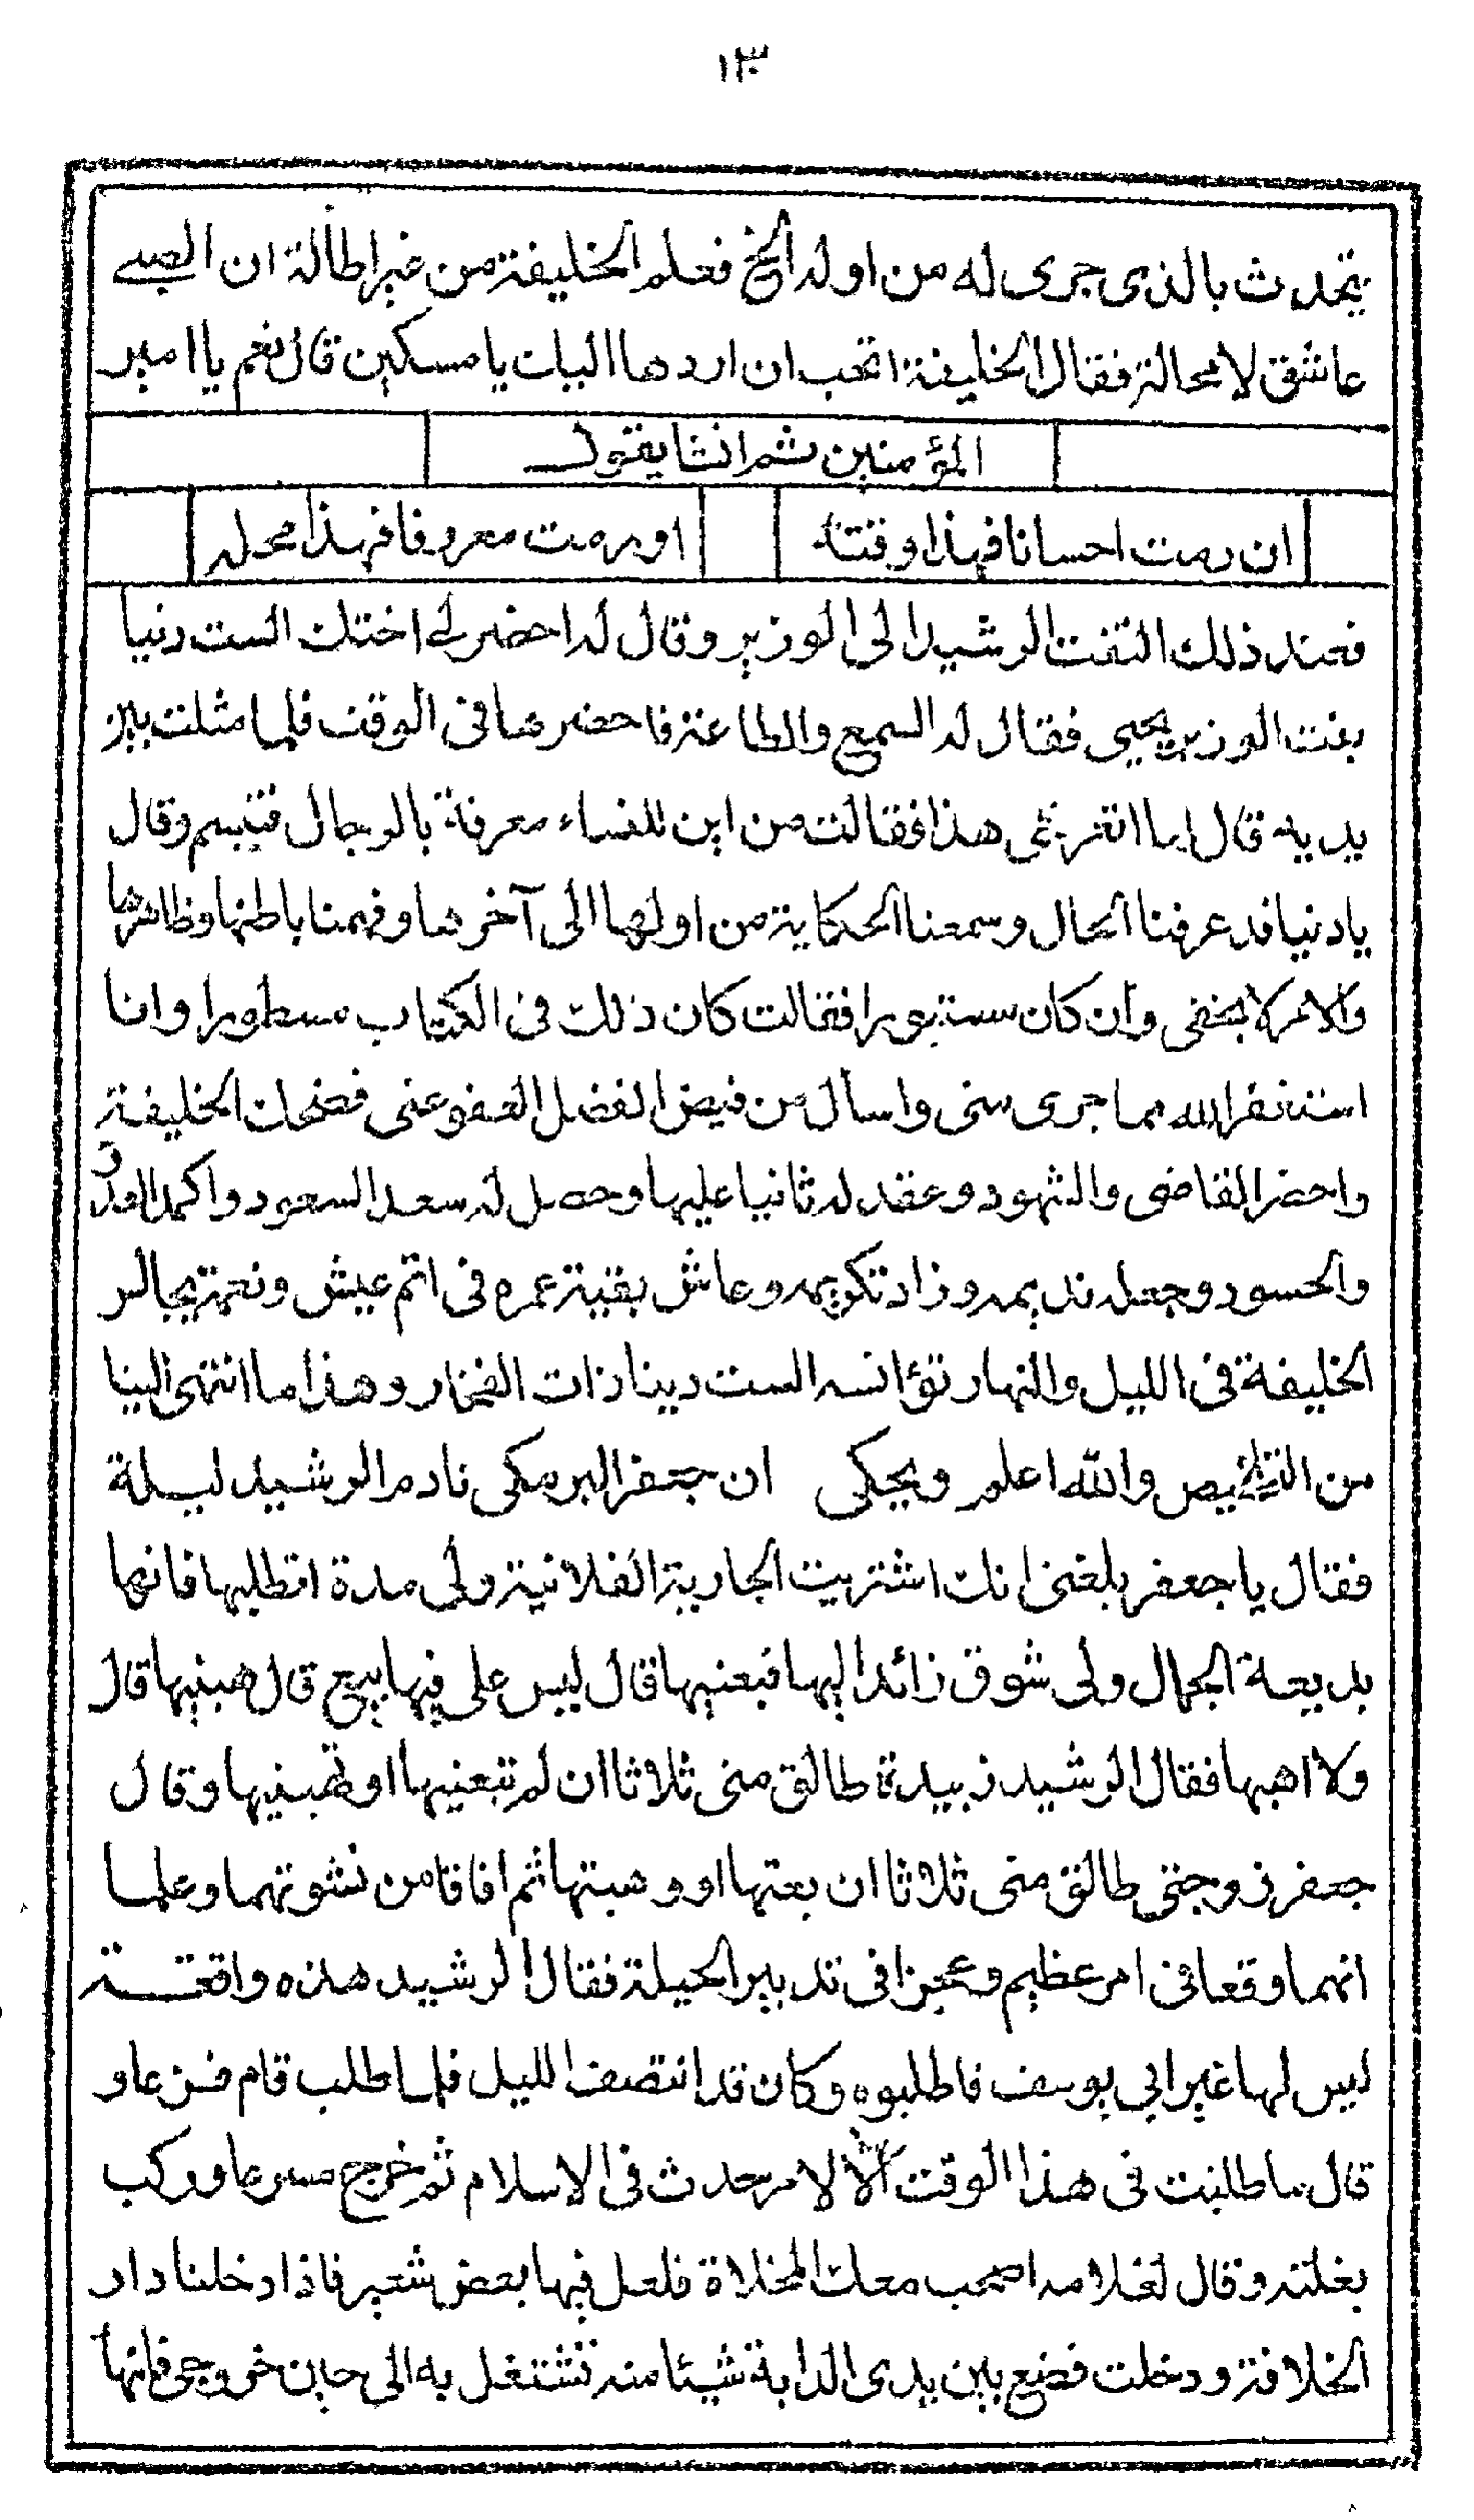 ١٣
يتحدث بالذى جرى له من اوله الخ فعلم الخليفة من غير اطالة ان الصبى
عاشق لا محالة فقال الخليفة اتحب ان اردها اليك يا مسكين قال نعم يا امير
المؤمنين ثم انشا يقول
ان رمت احسانا فهذا وقته
او رمت معروفا فهذا محله
فعند ذلك التفت الرشيد الى الوزير وقال له احضر لى اختك الست دنيا
بنت الوزير يحيى فقال له السمع والطاعة فاحضرها فى الوقت فلما مثلت بين
يديه قال لها اتعرفى هذا فقالت من اين للنساء معرفة بالرجال فتبسم وقال
يا دنيا قد عرفنا الحال وسمعنا الحكاية من اولها الى آخرها وفهمنا باطنها وظاهرها
والامر لا يخفى وان كان مستورا فقالت كان ذلك فى الكتاب مسطورا وانا
استغفر الله مما جرى منى واسأل من فيض الفضل العفو عنى فضحك الخليفة
واحضر القاضى والشهود وعقد له ثانيا عليها وحصل له سعد السعود واكمد العدو
والحسود وجعله نديمه وزاد تكريمه وعاش بقية عمره فى اتم عيش ونعمة يجالس
الخليفة فى الليل والنهار تؤانسه الست دينا ذات الفخار وهذا ما انتهى الينا
من التلخيص والله اعلم ويحكى ان جعفر البرمكى نادم الرشيد ليلة
فقال يا جعفر بلغنى انك اشتريت الجارية الفلانية ولى مدة اتطلبها فانها
بديعة الجمال ولى شوق زائد اليها فبعنيها قال ليس على فيها بيع قال هبنيها قال
ولا اهبها فقال الرشيد زبيدة طالق منى ثلاثا ان لم تبعنيها او تهبنيها وقال
جعفر زوجتى طالق منى ثلاثا ان بعتها او وهبتها ثم افاقا من نشوتهما وعلما
انهما وقعا فى امر عظيم وعجزا فى تدبير الحيلة فقال الرشيد هذه واقعة
ليس لها غير ابي يوسف فاطلبوه وكان قد انتصف الليل فلما طلب قام فزعا و
قال ما طلبت فى هذا الوقت الا لامر حدث في الاسلام ثم خرج مسرعا وركب
بغلته وقال لغلامه اصحب معك المخلاة فلعل فيها بعض شعير فاذا دخلنا دار
الخلافة ودخلت فضع بين يدى الدابة شيئا منه تشتغل به الى حين خروجى فانها